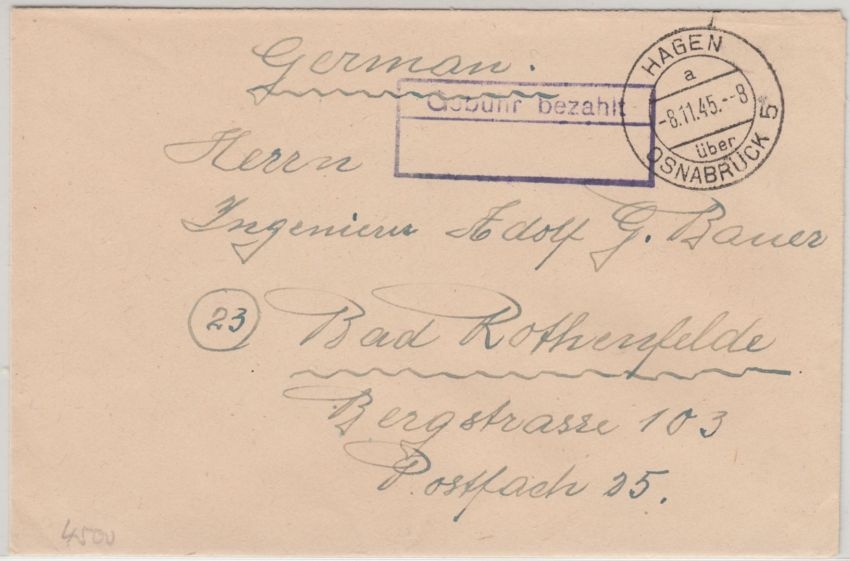 German.
Gebühr bezahlt
HAGEN
a
-8.11.45.--8
über
OSNABRÜCK 5
Herrn
Ingenieur Adolf G. Bauer
23 Bad Rothenfelde
Bergstrasse 103
Postfach 25.
4500